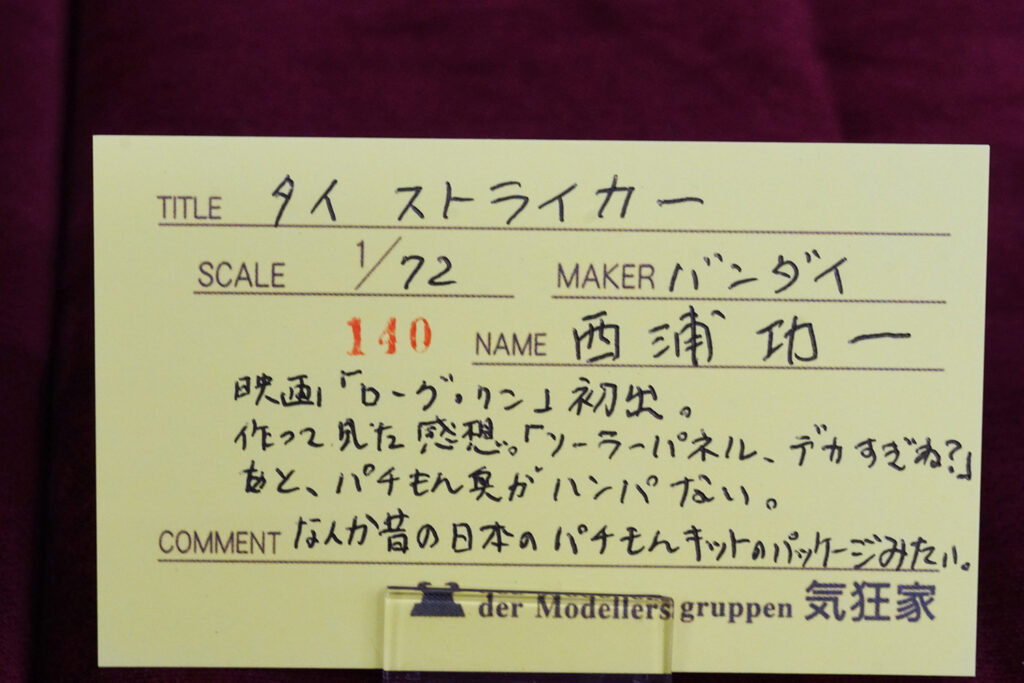 TITLE タイ ストライカー
SCALE 1/72 MAKER バンダイ
140 NAME 西浦功一
映画「ローグ・ワン」初出。
作って見た感想。「ソーラーパネル、デカすぎね?」
あと、パチもん臭がハンパない。
COMMENT なんか昔の日本のパチモんキットのパッケージみたい。
der Modellers gruppen 気狂家